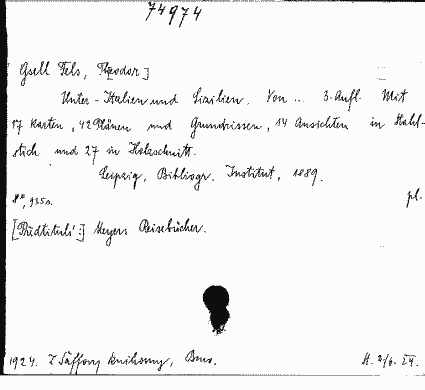 74974
Gsell Fels, Th[eodor]
Unter-Italien und Sizilien. Von .. 3. Aufl. Mit
17 Karten, 42 Plänen und Grundrissen, 14 Ansichten in Stahl-
stich und 27 in Holzschnitt.
Leipzig, Bibliogr. Institut, 1889.
8°, 935 s. pl.
[Předtitul:] Meyers Reisebücher.
1924. Z knihovny, Brno.